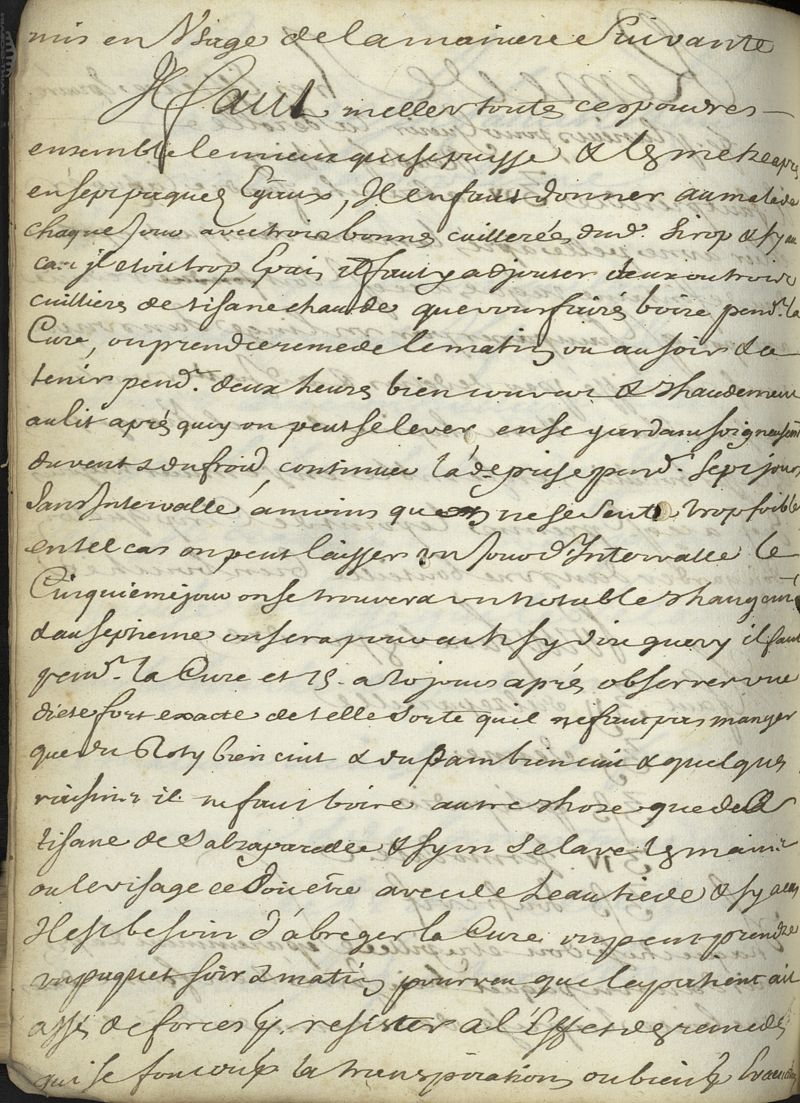 mis en Usage de la maniere Suivante
Il faut meller toutes ces poudres
ensemble le mieux qui se puisse & les metre apres
en sept paquez Egaux, Il en faut donner au malade
chaque jour avec trois bonnes cuillerées dud. Sirop & sy au
cas il etoit trop Epais il faut y adjouter deux ou trois
cuilliers de tisane chaude que vous fairés boire pend.t la
Cure, on prend ce remede le matin ou au soir & se
tenir pend.t deux heures bien couvert & chaudement
au lit aprés quoy on peut se lever en se gardant soigneusemt
du vent & du froid continuer lad.e prise pend.t sept jours
sans Intervalle à moins qu'on ne se sente trop foible
en tel cas on peut laisser un jour d'Intervalle le
Cinquieme jour on se trouvera un notable changemt
& au septieme on sera pour ainsy dire guery il faut
pend.t la Cure et 15. a 20 jours aprés observer une
diete fort exacte de telle sorte qu'il ne faut pas manger
que du Roty bien cuit & du pain bien cuit & quelques
raisins il ne faut boire autre chose que de la
tisane de Salzapareille & sy on se lave les mains
ou le visage ce doit être avec de l'eau tiede & sy au cas
Il est besoin d'abreger la Cure on peut prendre
un paquet soir & matin pourveu que le patient ait
assés de forces p.r resister a l'Effet des remedes
qui se font ou p.r la transpiration ou bien p.r Evacuations